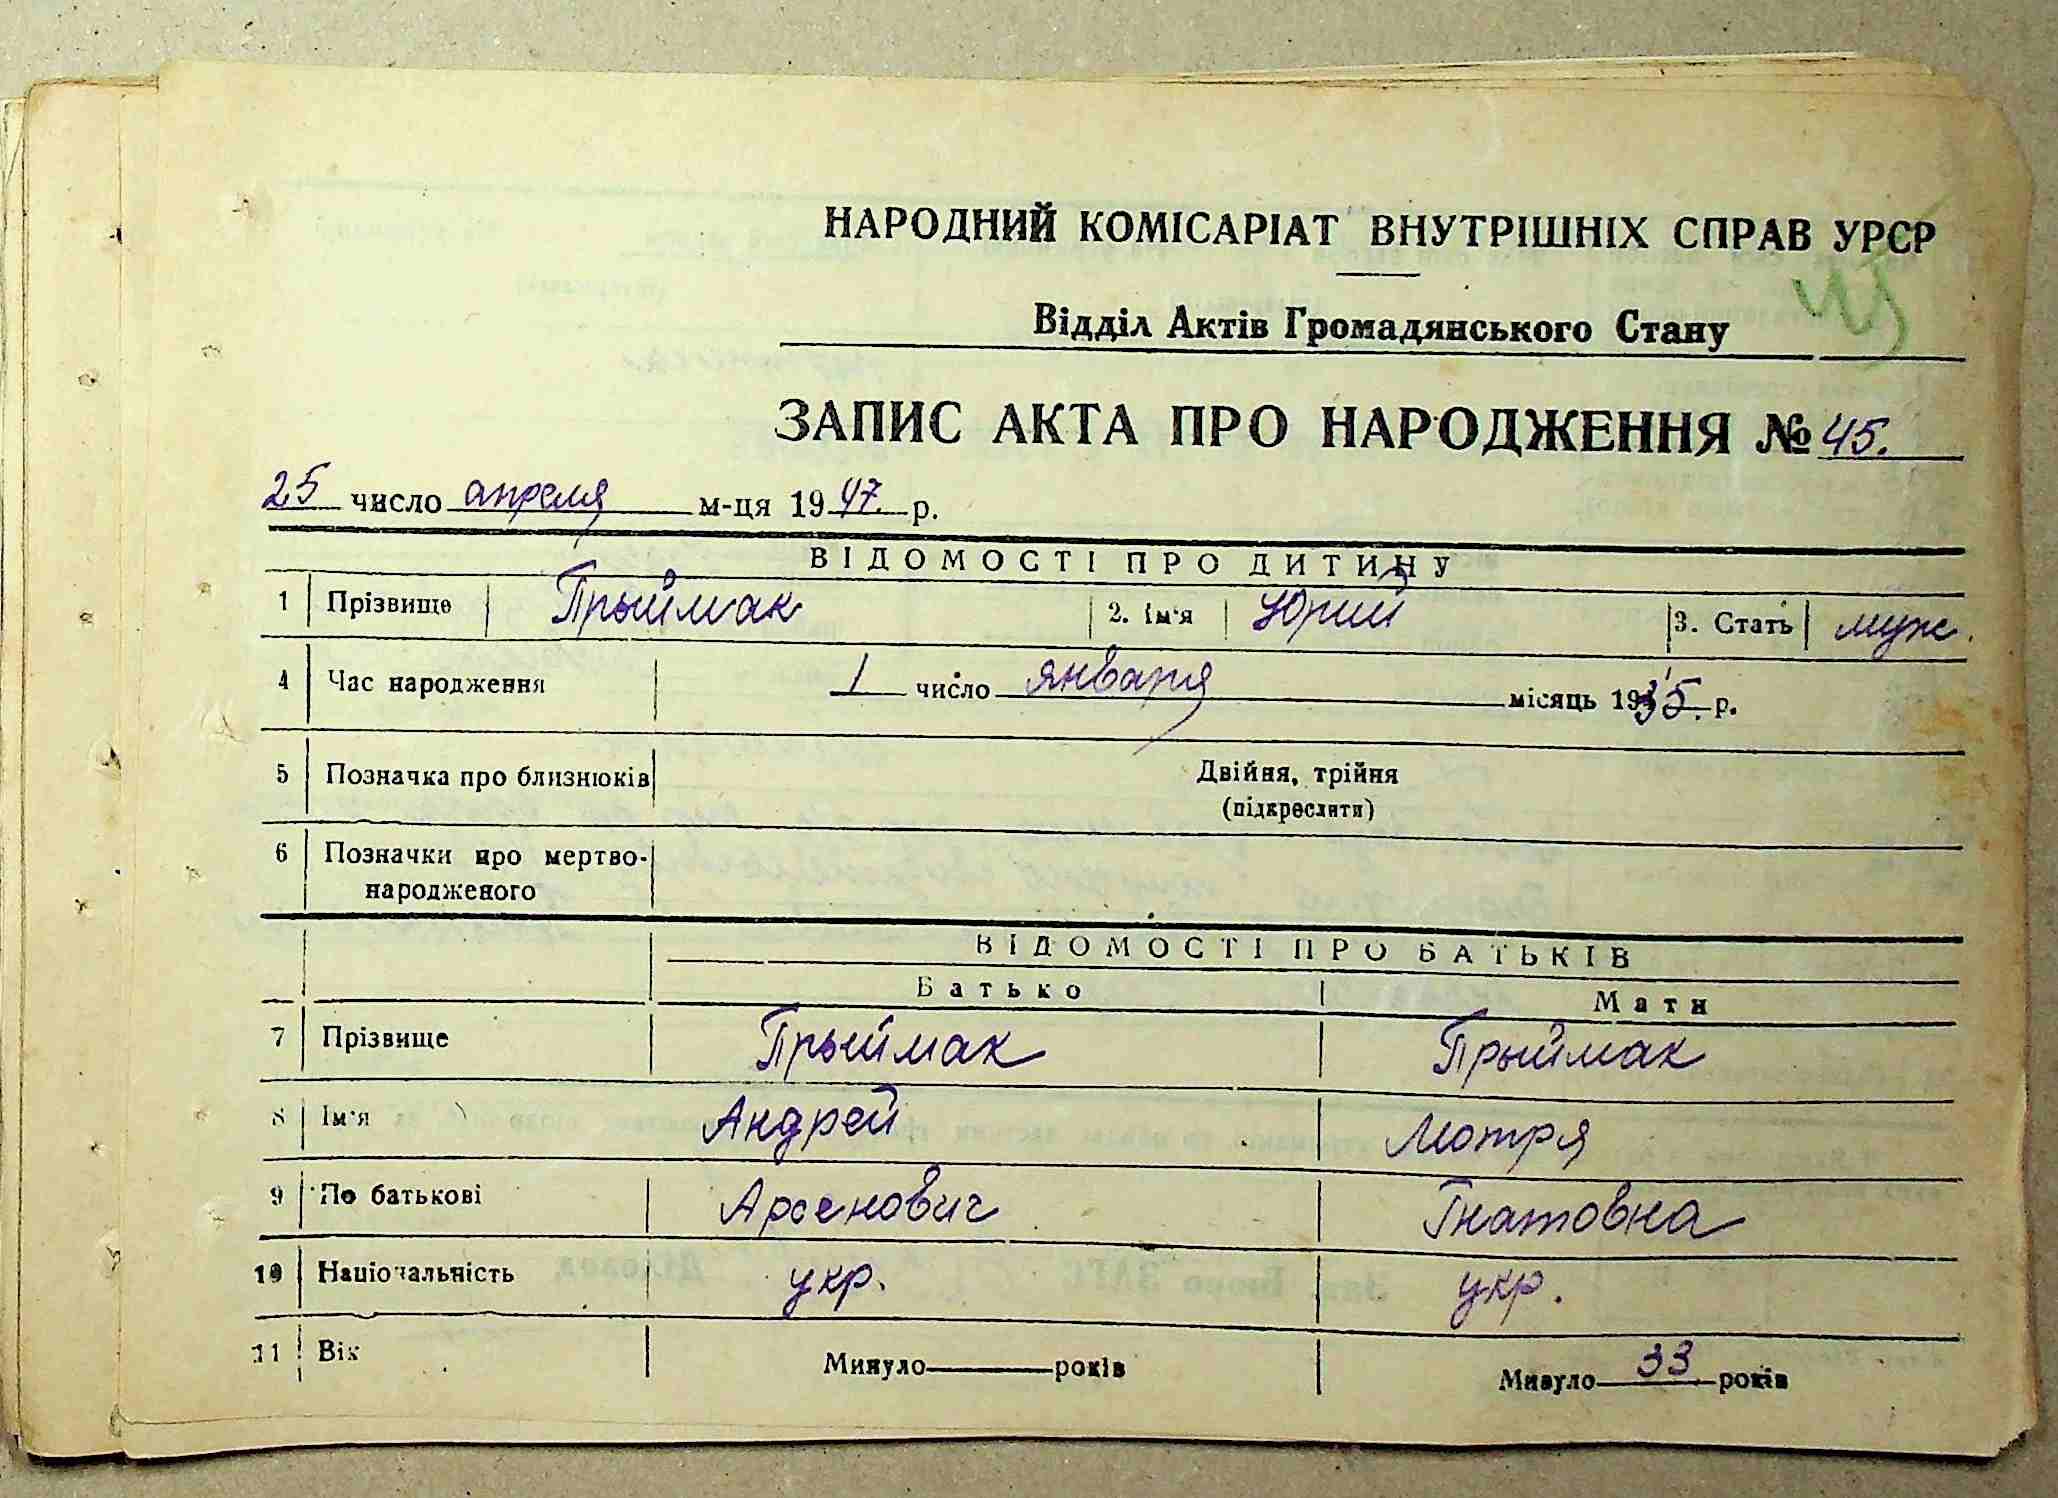 НАРОДНИЙ КОМІСАРІАТ ВНУТРІШНІХ СПРАВ УРСР
Відділ Актів Громадянського Стану
ЗАПИС АКТА ПРО НАРОДЖЕННЯ № 45.
25 число апреля м-ця 1947. р.
ВІДОМОСТІ ПРО ДИТИНУ
1 Прізвище Прыймак 2. Ім'я Юрий 3. Стать муж.
4 Час народження 1 число января місяць 1935. р.
5 Позначка про близнюків Двійня, трійня
(підкреслити)
6 Позначки про мертво-
народженого
ВІДОМОСТІ ПРО БАТЬКІВ
Батько Мати
7 Прізвище Прыймак Прыймак
8 Ім'я Андрей Мотря
9 По батькові Арсенович Гнатовна
10 Національність укр. укр.
11 Вік Минуло років Минуло 33 років